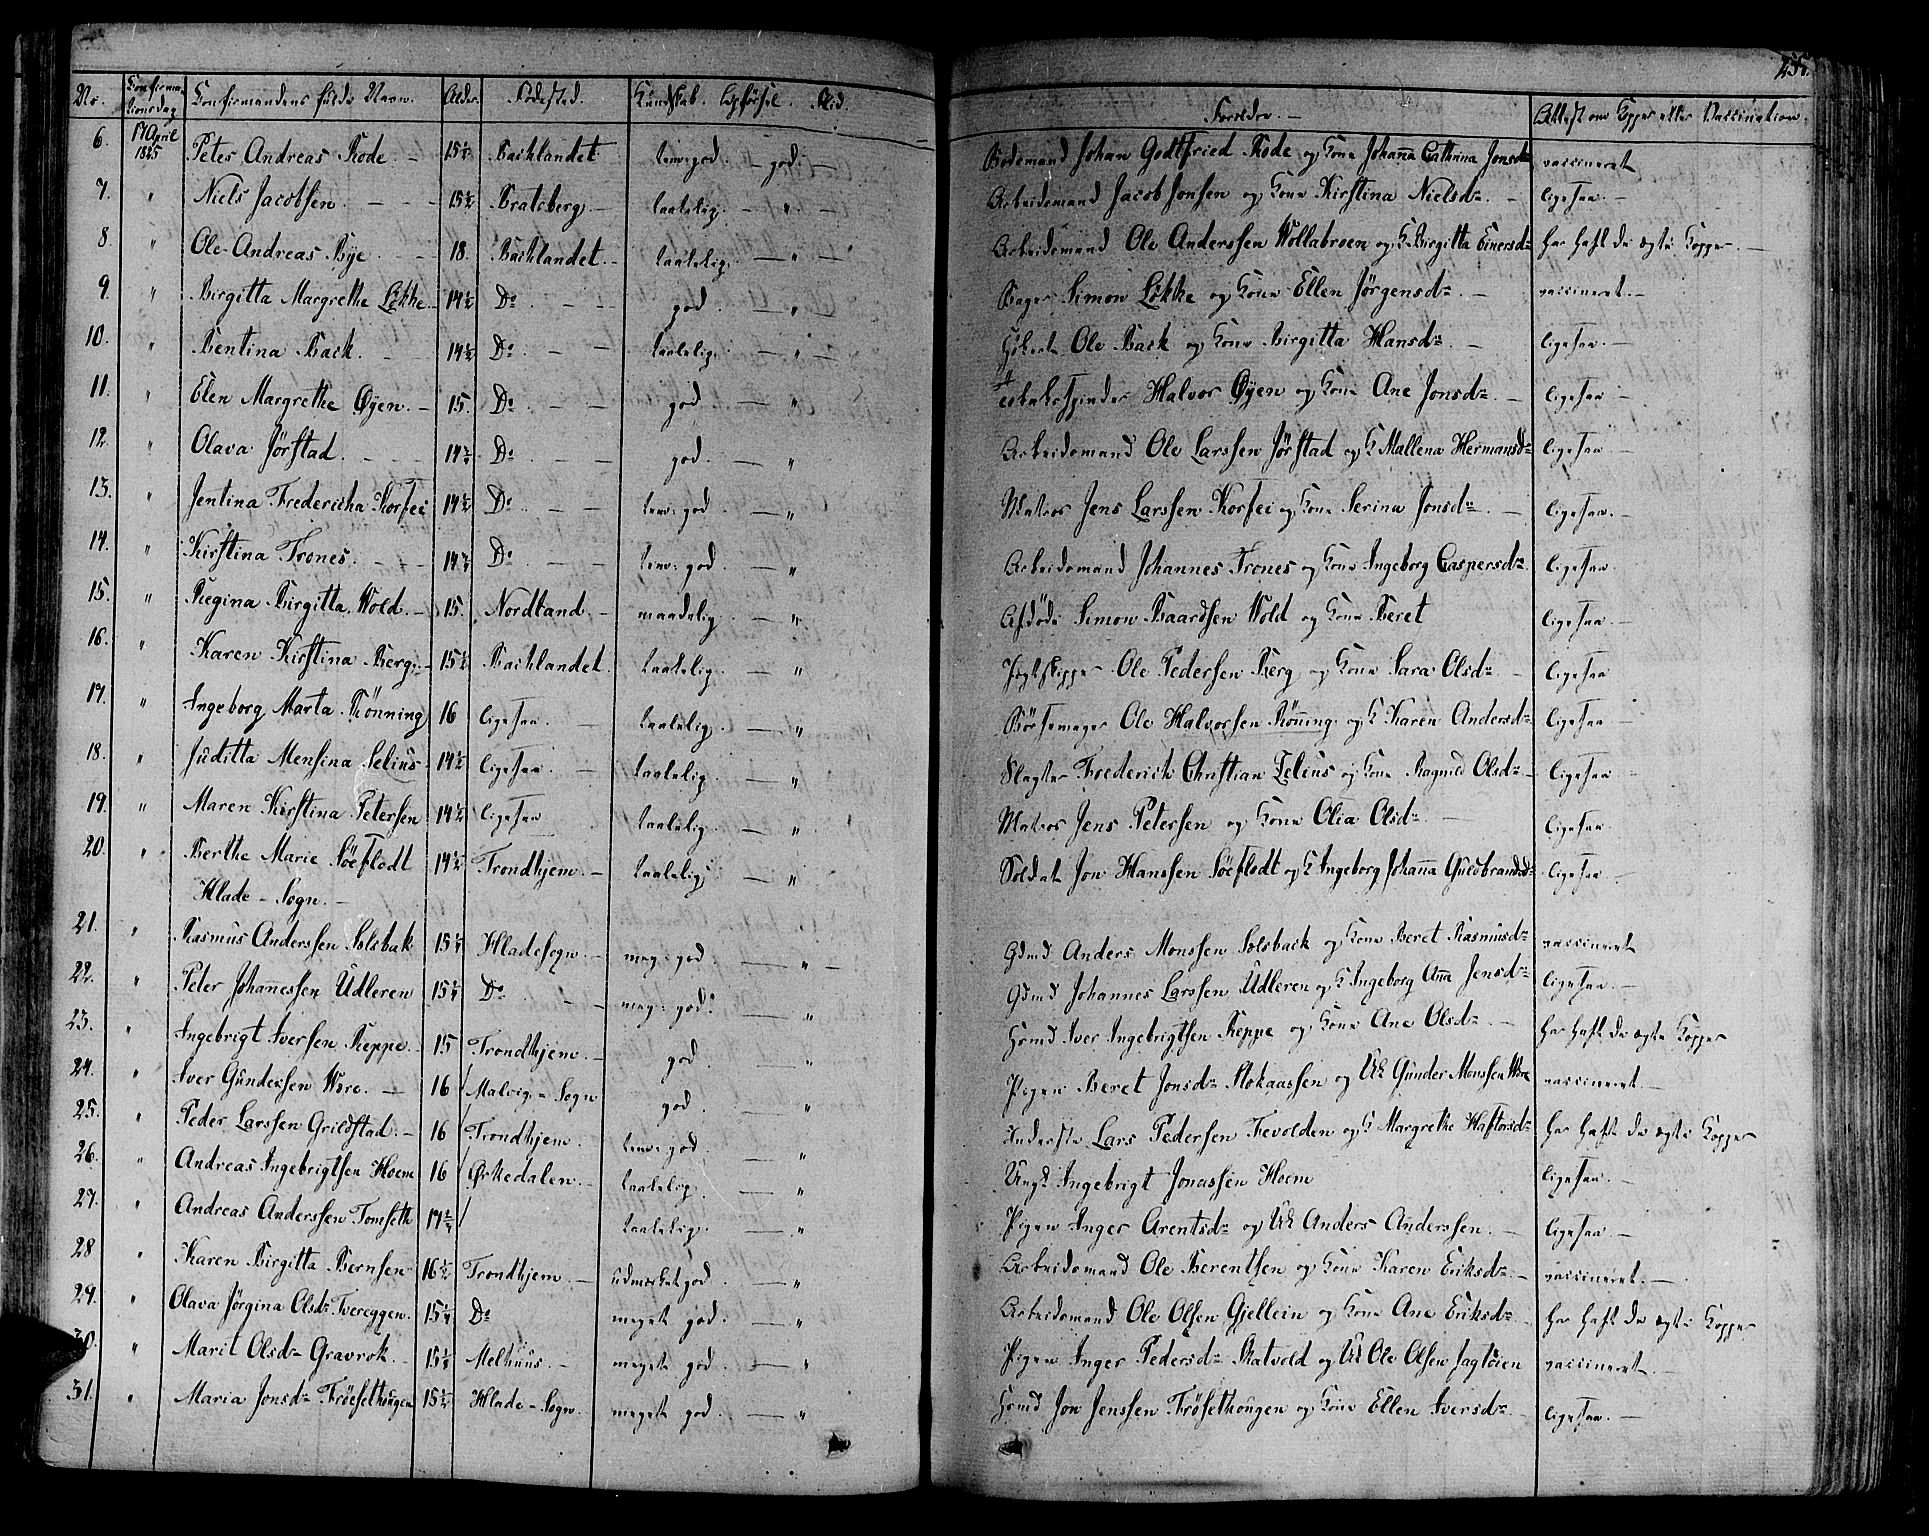 No. Confirma-tionsdag Confirmandens fulde Navn. Alder. Fødested. Kundskab. Opførsel. Flid. Forældre. — Attest om Kopper eller Vaccination.
6. 17 April 1825 Peter Andreas Rode. — 15¼ Backlandet tem: god. — god. — Bødemand Johan Godtfried Rode og Kone Johana Cathrina Jonsdr vaccineret
7. " Niels Jacobsen. — 15½ Bratsberg. — taalelig. — " — Arbeidsmand Jacob Jonsen og Kone Kirstina Nielsdr. — ligesaa. —
8. " Ole Andreas Bye. — 18. Backlandet. — taalelig. — " — Arbeidsmand Ole Anderssen Wollabroen og K. Birgitta Einersdr har haft de ægte Kopper. —
9. " Birgitta Margrethe Løkke. 14½ Do. — god. — " Bager Simon Løkke og Kone Ellen Jørgensdr. — vaccineret. —
10. " Bentina Back. — 14½ Do. — taalelig. — " — Høker Ole Back og Kone Birgitta Hansdr. — ligesaa. —
11. " Elen Margrethe Øyen. — 15. Do. — god. — " Halvor Øyen og Kone Ane Jonsdr. — ligesaa —
12. " Olava Jørstad. — 14¾ Do. — god. — " Arbeidsmand Ole Larssen Jørstad og K Mallena Hermansdr ligesaa. —
13. " Jentina Fredericha Korsei 14½ Do. — tem: god — " Matros Jens Larssen Korsei og Kone Serina Jonsdr. — ligesaa. —
14. " Kirstina Trones. — 14¾ Do. — tem: god. — " Arbeidsmand Johannes Trones og Kone Ingeborg Caspersdr. ligesaa.
15. " Regina Birgitta Wold. — 15. Nordland. — maadelig. — " Afdøde Simon Baardsen Wold og Kone Beret ligesaa. —
16. " Karen Kirstina Berg. — 15½ Backlandet. taalelig. — " Jagtskipper Ole Pedersen Berg og Kone Sara Olsdr. — ligesaa —
17. " Ingeborg Marta Rönning 16 ligesaa. — taalelig. — " Børsemager Ole Halvorsen Röning og K Karen Andersdr ligesaa —
18. " Juditta Mensina Selius 14½ ligesaa. — taalelig — " Slagter Frederich Christian Zelius og Kone Ragnild Olsdr — ligesaa —
19. " Maren Kirstina Petersen 14½ ligesaa taalelig. — " Matros Jens Petersen og Kone Olia Olsdr. — ligesaa
20. " Berthe Marie Söeflodt 14½ Trondhjem. — taalelig — " Soldat Jon Hanssen Söeflodt og K Ingeborg Johana Guldbrandsdr ligesaa. —
Hlade-Sogn. —
21. " Rasmus Anderssen Solsbak 15¼ Hlade Sogn. — meg: god. — " — Gdmd Anders Monssen Solsback og Kone Beret Rasmusdr vaccineret
22. " Peter Johanessen Udleren 15¼ Do. — meg: god: — " Gdmd Johannes Larssen Udleren og K Ingeborg Ana Jensdr ligesaa. —
23. " Ingebrigt Iversen Reppe. — 15 Trondhjem. — god — " Hsmd Iver Ingebrigtsen Reppe og Kone Ane Olsdr. — har haft de ægte Kopper
24. " Iver Gundersen Were. — 16 / Malvig-Sogn god. — " Pigen Beret Jonsdr Slokaassen og Uk Gunder Monssen Were vaccineret. —
25. " Peder Larssen Grildstad. — 16 / Trondhjem. tem: god. — " Inderste Lars Pedersen Trevolden og K Margrethe Haftorsdr har haft de ægte Kopper
26. " Andreas Ingebrigtsen Hoem 16 / Örkedalen. — taalelig. — " Ungk Ingebrigt Jonassen Hoem ligesaa. —
27. " Andreas Anderssen Tomseth 17¾ / taalelig. — " Pigen Inger Arentsdr og Uk Anders Anderssen. — ligesaa. —
28 " Karen Birgitta Bernsen 16½ Trondhjem. — udmerket god. — " Arbeidsmand Ole Berentsen og Kone Karen Eriksdr — vaccineret. —
29. " Olava Jörgina Olsdr Tvereggen. 15¼ Do meget god. — " Arbeidsmand Ole Olsen Gjellein og Kone Ane Eriksdr. har haft de ægte Kopper
30. " Marit Olsdr Gravrok. 15¼ Melhuus. — meget god. — " Pigen Inger Pedersdr Skatvold og Uk Ole Olsen Jagtöien vaccineret. —
31. " Maria Jonsdr Fröesethougen 15½ Hlade-Sogn. meget god. — " Hsmd Jon Jenssen Fröesethougen og Kone Ellen Iversdr. ligesaa. —